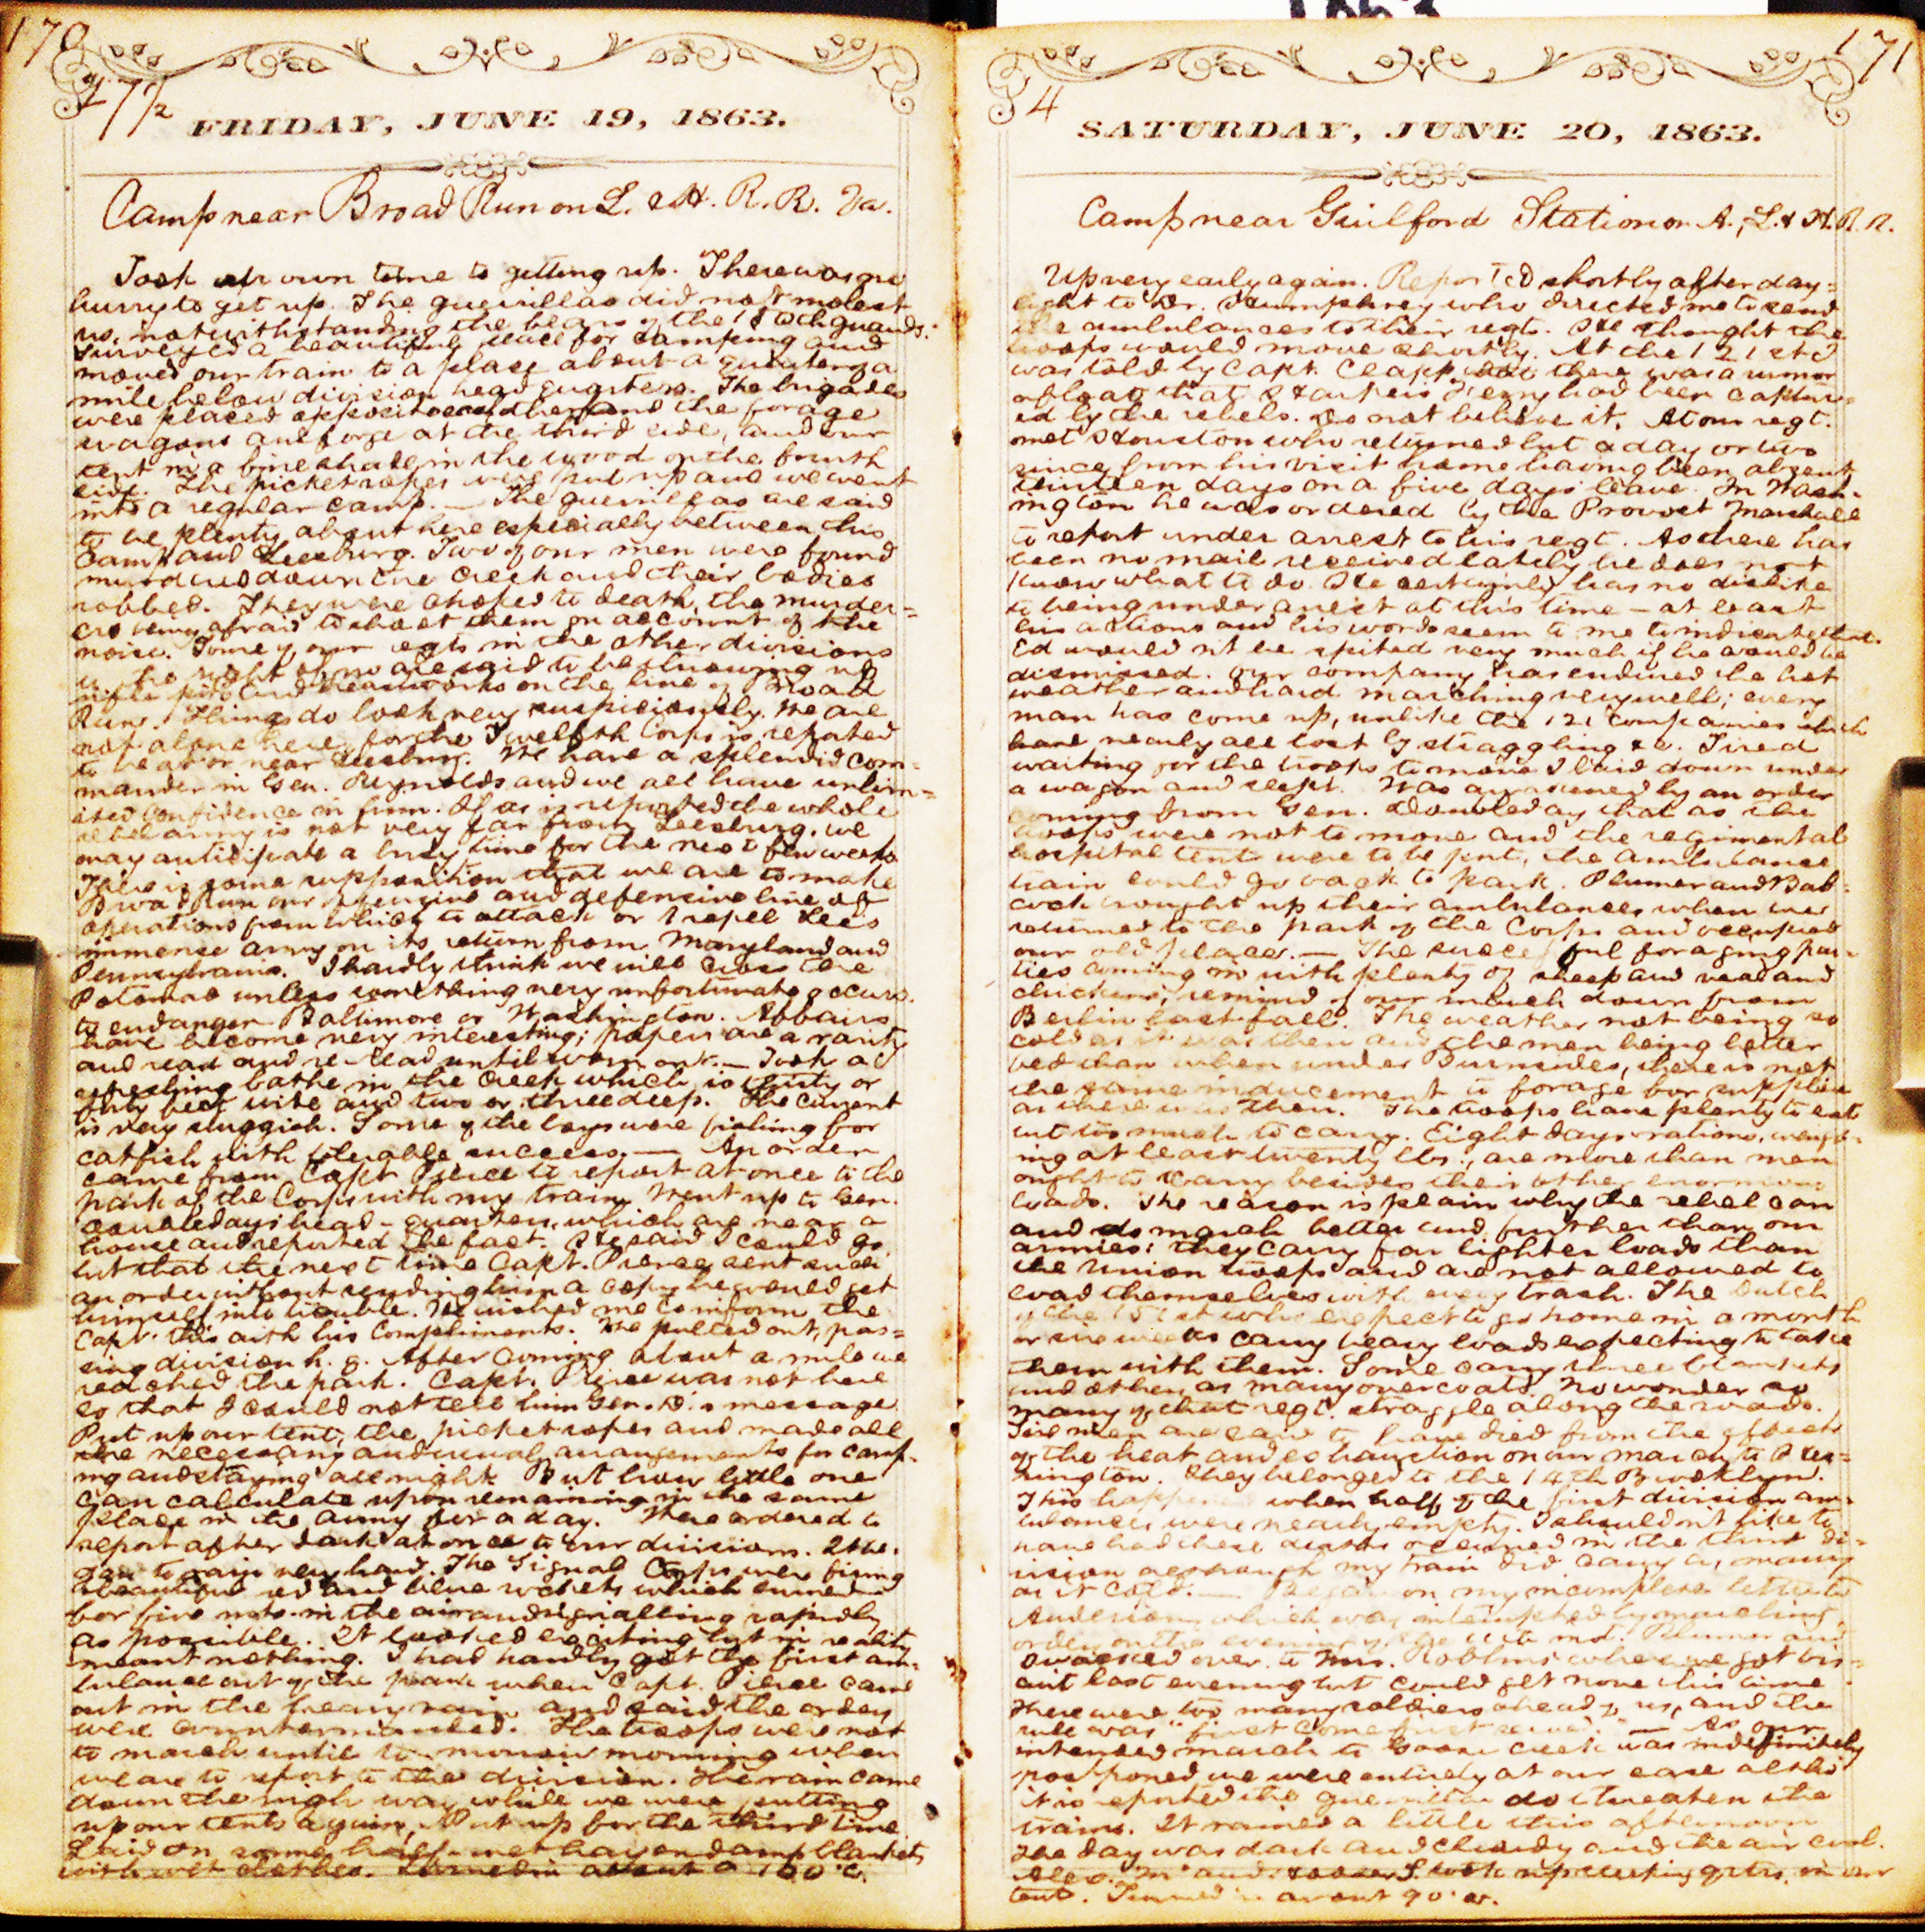 170
FRIDAY, JUNE 19, 1863.
Camp near Broad Run on L. & H. R. R. Va.
Took our own time to getting up. There was no
hurry to get up. The guerillas did not molest
us, notwithstanding the fears of the guards.
Surveyed a beautiful place for camping and
moved our train to a place about a quarter of a
mile below division head quarters. The brigades
were placed opposite each other and the forage
wagons and forge at the third side, and our
tent in a fine shade in the wood on the fourth
side. The picket ropes were put up and we went
into a regular camp. — The guerillas are said
to be plenty about here especially between this
camp and Leesburg. Two of our men were found
murdered down the creek and their bodies
robbed. They were choked to death, the murder=
ers being afraid to shoot them on account of the
noise. Some of our regts in the other divisions
to the right of us are said to be throwing up
rifle pits and breastworks on the line of Broad
Run. Things do look very suspiciously. We are
not alone here, for the Twelfth Corps is reported
to be at or near Leesburg. We have a splendid com=
mander in Gen. Reynolds and we all have unlim=
ited confidence in him. If as is reported the whole
rebel army is not very far from Leesburg, we
may anticipate a busy time for the next few weeks.
There is some supposition that we are to make
Broad Run our offensive and defensive line of
operations from which to attack or repel Lee's
immense army on its return from Maryland and
Pennsylvania. I hardly think we will cross the
Potomac unless something very unfortunate occurs
to endanger Baltimore or Washington. Affairs
have become very interesting; papers are a rarity
and read and re-read until worn out. — Took a
refreshing bathe in the creek which is thirty or
forty feet wide and two or three deep. The current
is very sluggish. Some of the boys were fishing for
catfish with tolerable success. — An order
came from Capt Pierce to report at once to the
park of the Corps with my train. Went up to Gen.
Doubleday's head-quarters, which are near a
house and reported the fact. He said I could go
but that the next time Capt. Pierce sent such
an order without sending him a copy he would get
himself into trouble. He wished me to inform the
Capt. this with his compliments. We pulled out, pas=
sing division h. q. After coming about a mile we
reached the park. Capt. Pierce was not here
so that I could not tell him Gen. D.'s message.
Put up our tent, the picket ropes and made all
the necessary and usual arrangements for camp-
ing and staying all night. But how little one
can calculate upon remaining in the same
place in the army for a day. Were ordered to
report after dark at once to our divisions. It be-
gan to rain very hard. The Signal Corps were firing
beautiful red and blue rockets which burned
for five mts. in the air and signalling rapidly
as possible. It looked exciting but in reality
meant nothing. I had hardly got the first am-
bulance out of the park when Capt. Pierce came
out in the heavy rain and said the orders
were countermanded. The troops were not
to march until to-morrow morning when
we are to report to the division. The rain came
down the right way while we were putting
up our tents again. Put up for the third time
Laid on some half-wet hay and damp blankets
with wet clothes. Turned in about
171
4
SATURDAY, JUNE 20, 1863.
Camp near Guilford Station on A., L. & H. R. R.
Up very early again. Reported shortly after day=
light to Dr. Humphrey who directed me to send
the ambulances to their regts. He thought the
troops would move shortly. At the 121st I
was told by Capt. Clapp that there was a rumor
afloat that Harpers Ferry had been captur=
ed by the rebels. Do not believe it. At our regt.
met Houston who returned but a day or two
since from his visit home having been absent
days on a five days' leave. In Wash-
ington he was ordered by the Provost Marshall
to report under arrest to his regt. As there has
been no mail received lately he does not
know what to do. He certainly has no dislike
to being under arrest at this time — at least
his actions and his words seem to me to indicate that.
Ed wouldn't be spited very much if he would be
dismissed. Our company has endured the hot
weather and hard marching very well; every
man has come up, unlike the 121 companies which
have nearly all lost by straggling &c. Tired
waiting for the troops to move I laid down under
a wagon and slept. Was awakened by an order
coming from Gen. Doubleday that as the
troops were not to move and the regimental
hospital tents were to be put, the ambulance
train could go back to park. Plumer and Bab=
cock brought up their ambulances when we
returned to the park of the Corps and occupied
our old places. — The successful foraging par-
ties coming in with plenty of sheep and veal and
chickens, remind of our march down from
Berlin last fall. The weather not being so
cold as it was then and the men being better
fed than when under Burnsides, there is not
the same inducement to forage for supplies
as there was then. The troops have plenty to eat
but too much to carry. Eight days rations, weigh-
ing at least twenty lbs., are more than men
ought to carry besides their other enormous
loads. The reason is plain why the rebel can
and do march better and further than our
armies: they carry far lighter loads than
the Union troops and are not allowed to
load themselves with every trash. The Dutch
of the 151st who expect to go home in a month
or six weeks carry heavy loads expecting to take
them with them. Some carry three blankets
and others as many overcoats. No wonder so
many of that regt. straggle along the roads.
men are said to have died from the effects
of the heat and exhaustion on our march to
They belonged to the 14th Brooklyn.
This happened when half of the first division am=
bulances were nearly empty. I shouldn't like to
have had these deaths occurred in the third di=
vision although my train did carry as many
as it could. — Began on my incomplete letter to
Anderson which was interrupted by marching
orders on the evening of the Plumer and I
walked over to Mrs. Robbins where we got bis=
cuit last evening but could get none this time
There were too many soldiers ahead of us, and the
rule was "first come first served." — As our
intended march to Goose Creek was indefinitely
postponed we were entirely at our ease altho'
it is reported the guerillas do threaten the
trains. It rained a little this afternoon
The day was dark and cloudy and the air cool.
and I took up sleeping qrtrs. in our
tent. Turned in about 9 o'c.